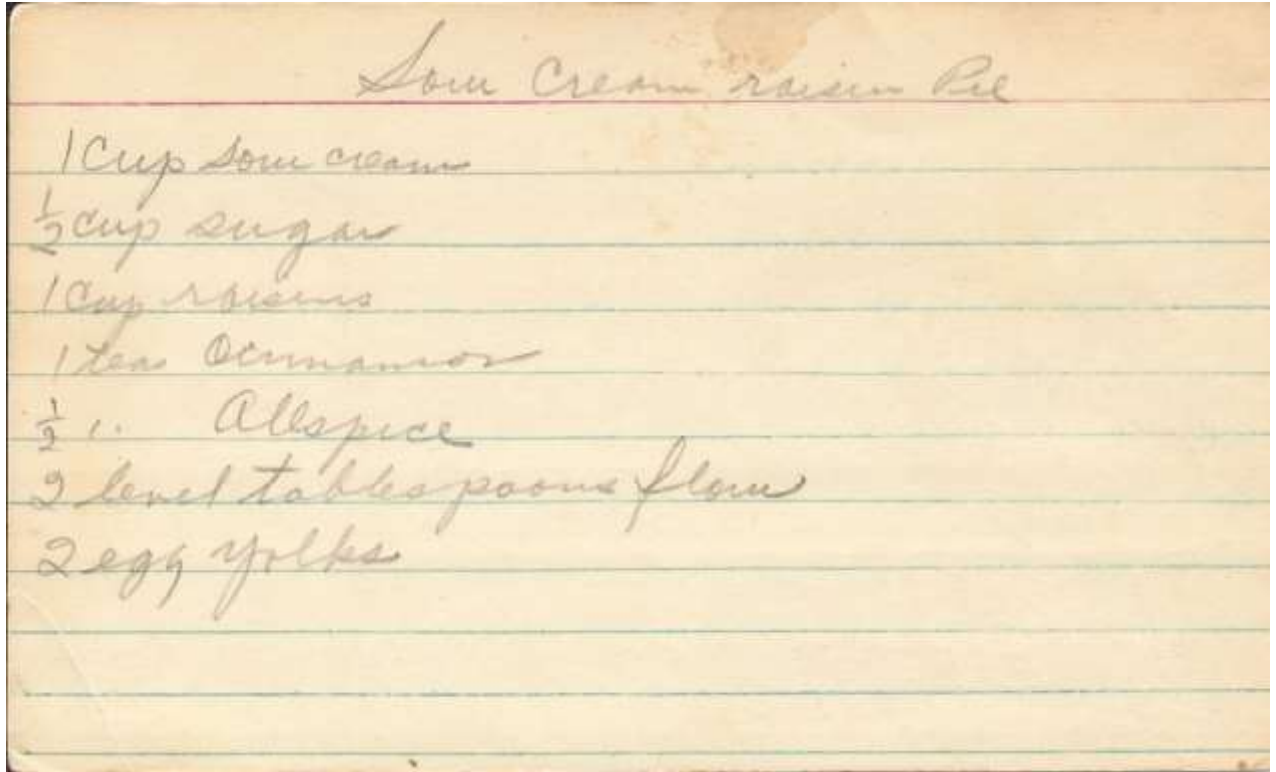 Sour Cream raisin Pie
1 Cup sour cream
½ cup sugar
1 Cup raisins
1 teas Cinnamon
½ " Allspice
2 level tablespoons flour
2 egg yolks